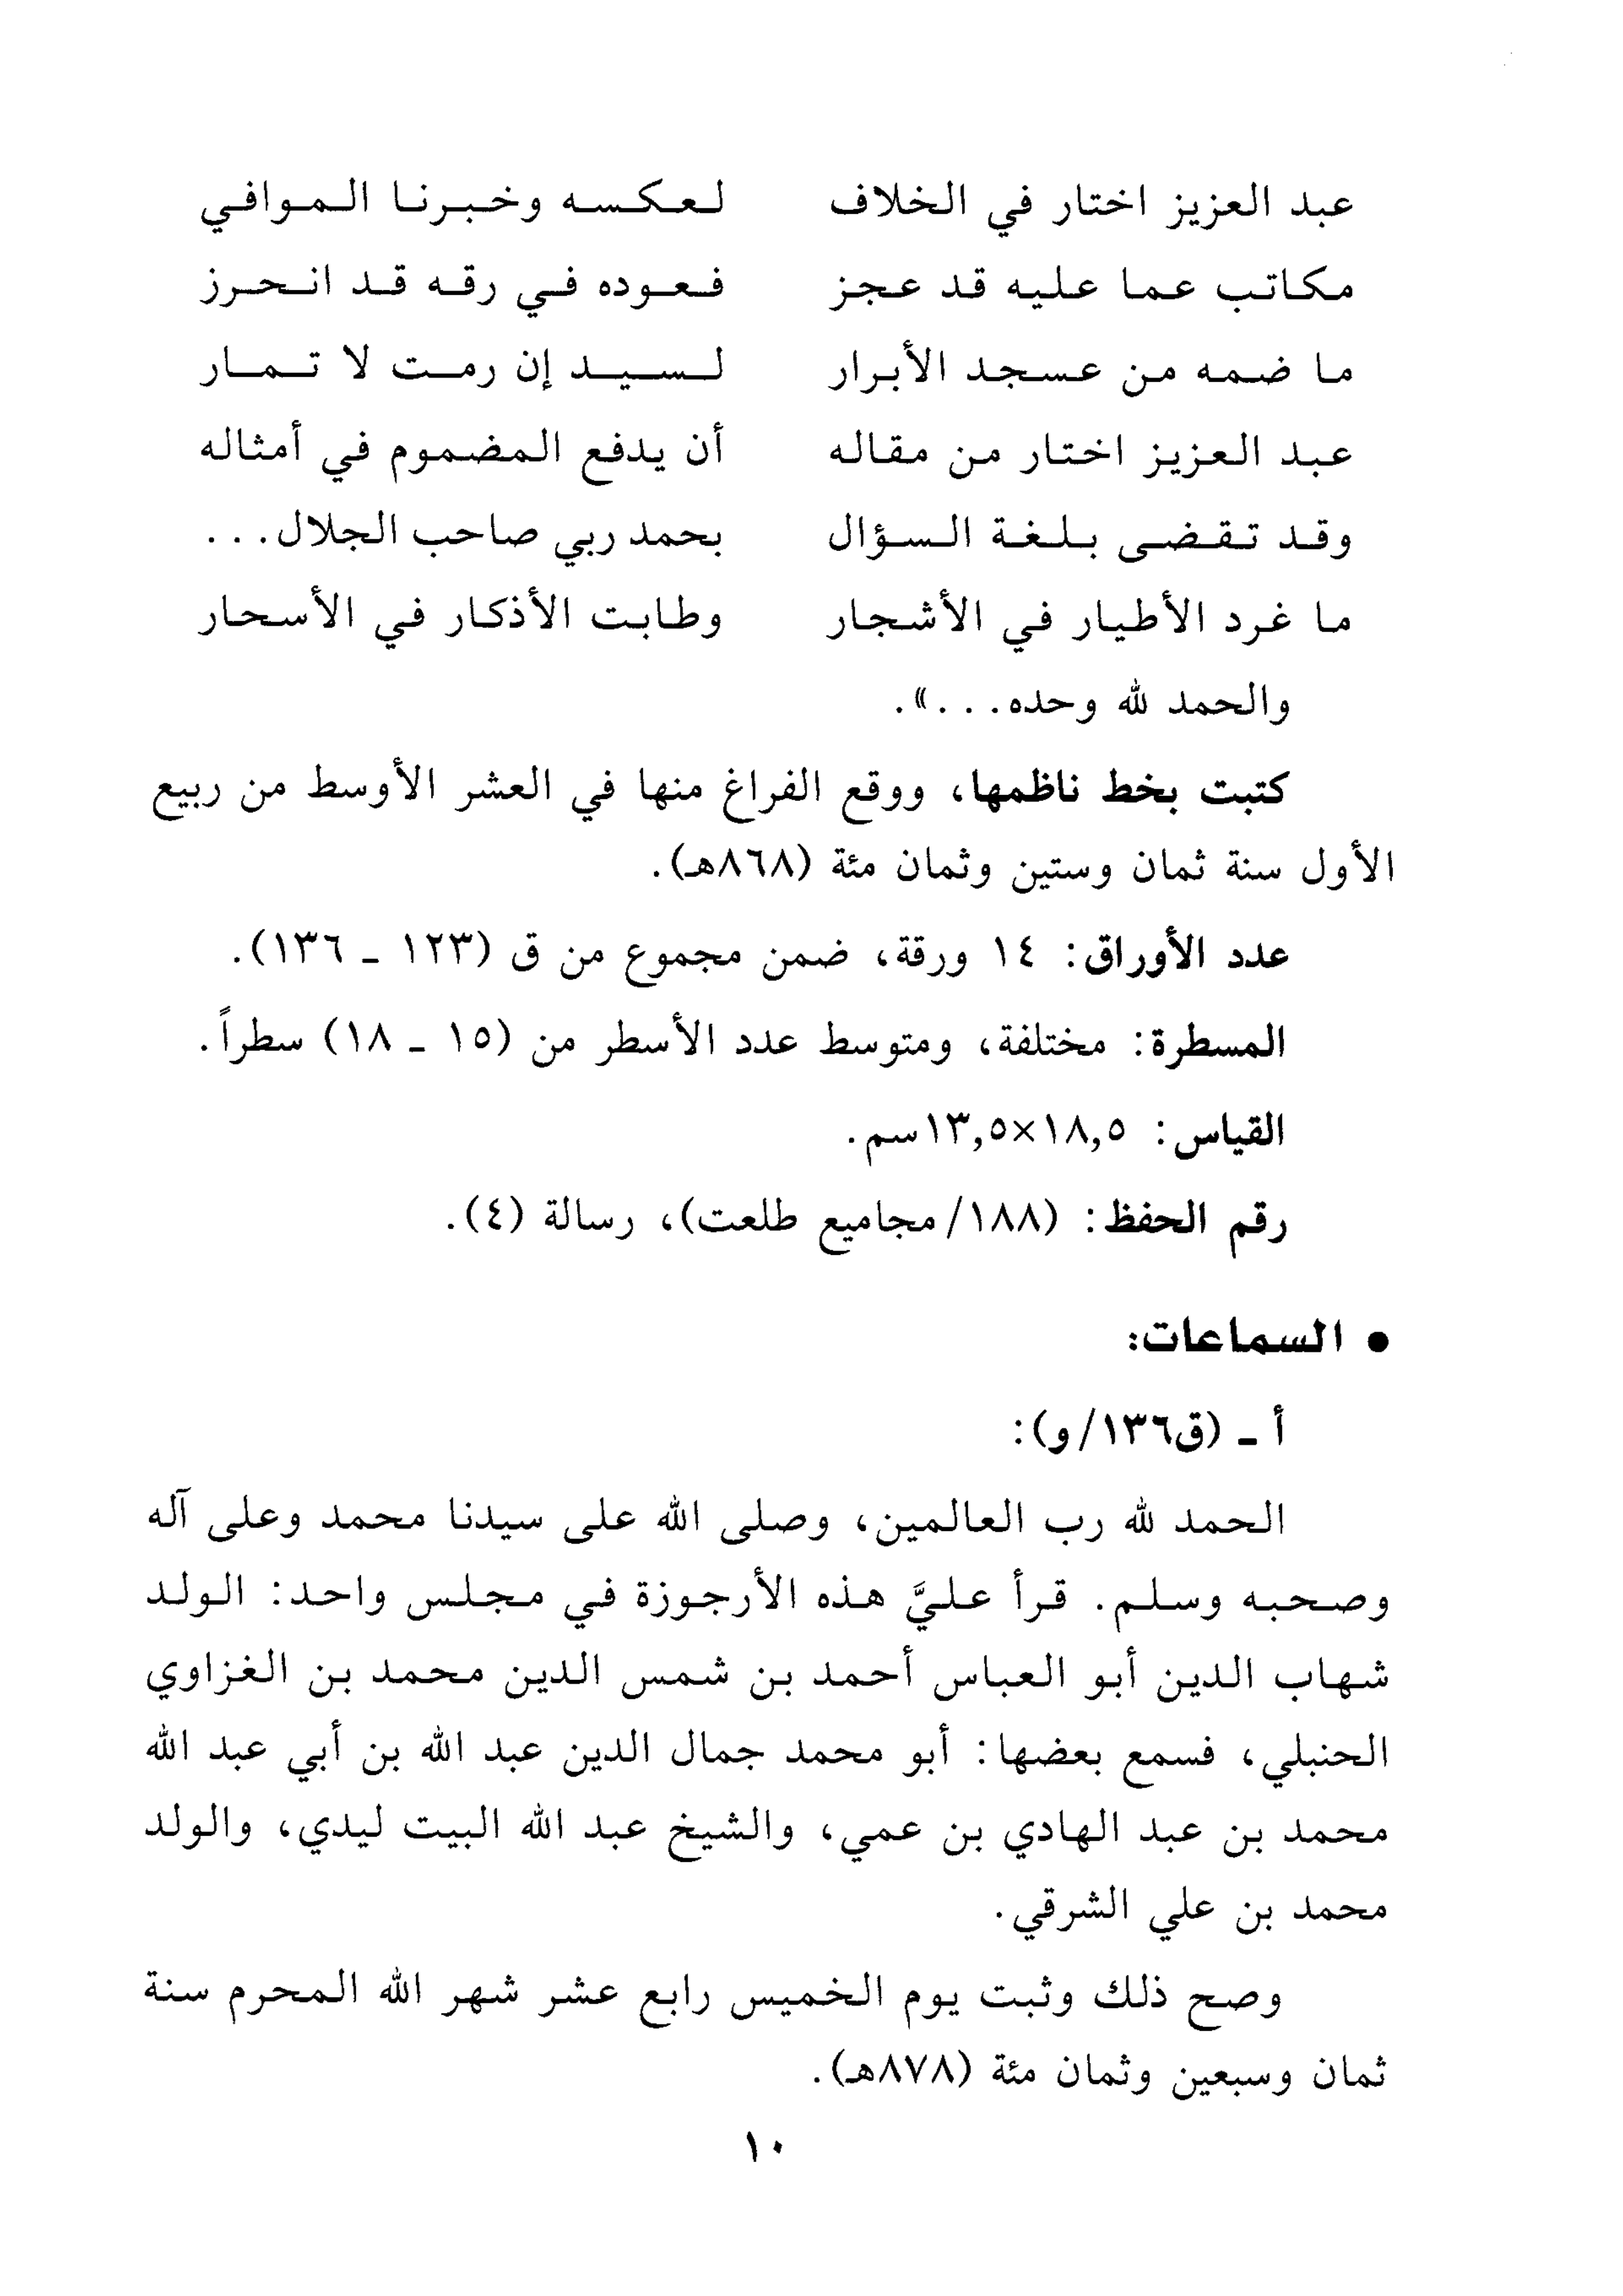 عبد العزيز اختار في الخلاف لعكسه وخبرنا الموافي
مكاتب عما عليه قد عجز فعوده في رقه قد انحرز
ما ضمه من عسجد الأبرار لسيد إن رمت لا تمار
عبد العزيز اختار من مقاله أن يدفع المضموم في أمثاله
وقد تقضى بلغة السؤال بحمد ربي صاحب الجلال...
ما غرد الأطيار في الأشجار وطابت الأذكار في الأسحار
والحمد لله وحده...».
كتبت بخط ناظمها، ووقع الفراغ منها في العشر الأوسط من ربيع
الأول سنة ثمان وستين وثمان مئة (٨٦٨هـ).
عدد الأوراق: ١٤ ورقة، ضمن مجموع من ق (١٢٣ - ١٣٦).
المسطرة: مختلفة، ومتوسط عدد الأسطر من (١٥ - ١٨) سطراً.
القياس: ١٨,٥×١٣,٥سم.
رقم الحفظ: (١٨٨/مجاميع طلعت)، رسالة (٤).
• السماعات:
أ - (ق١٣٦/و):
الحمد لله رب العالمين، وصلى الله على سيدنا محمد وعلى آله
وصحبه وسلم. قرأ عليَّ هذه الأرجوزة في مجلس واحد: الولد
شهاب الدين أبو العباس أحمد بن شمس الدين محمد بن الغزاوي
الحنبلي، فسمع بعضها: أبو محمد جمال الدين عبد الله بن أبي عبد الله
محمد بن عبد الهادي بن عمي، والشيخ عبد الله البيت ليدي، والولد
محمد بن علي الشرقي.
وصح ذلك وثبت يوم الخميس رابع عشر شهر الله المحرم سنة
ثمان وسبعين وثمان مئة (٨٧٨هـ).
١٠